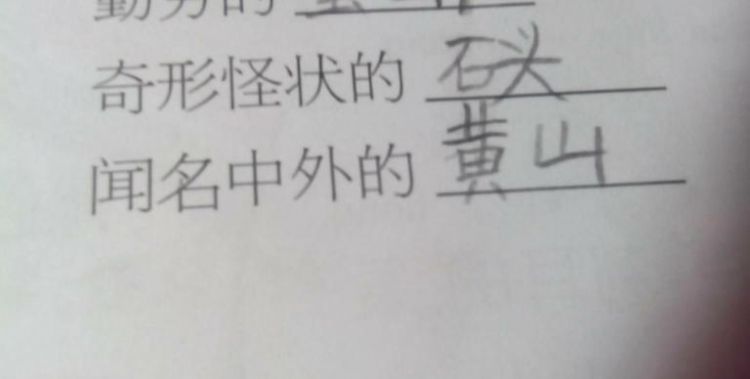 勤劳的
奇形怪状的 石头
闻名中外的 黄山